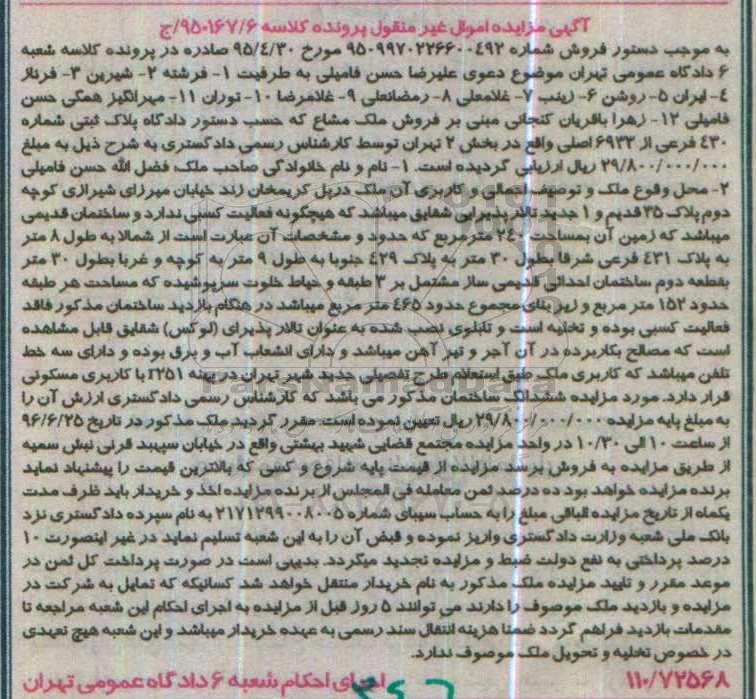 آگهی مزایده اموال غیر منقول پرونده کلاسه ۹۵۰۱۶۷/۶/ج
به موجب دستور فروش شماره ۹۵۰۹۹۷۰۲۲۶۶۰۰۴۹۲ مورخ ۹۵/۴/۳۰ صادره در پرونده کلاسه شعبه
۶ دادگاه عمومی تهران موضوع دعوی علیرضا حسن فامیلی به طرفیت ۱- فرشته ۲- شیرین ۳- فرناز
۴- ایران ۵- روشن ۶- زینب ۷- غلامعلی ۸- رمضانعلی ۹- غلامرضا ۱۰- توران ۱۱- مهرانگیز همگی حسن
فامیلی ۱۲- زهرا باقریان کنجانی مبنی بر فروش ملک مشاع که حسب دستور دادگاه پلاک ثبتی شماره
۴۳۰ فرعی از ۶۹۳۳ اصلی واقع در بخش ۲ تهران توسط کارشناس رسمی دادگستری به شرح ذیل به مبلغ
۲۹/۸۰۰/۰۰۰/۰۰۰ ریال ارزیابی گردیده است. ۱- نام و نام خانوادگی صاحب ملک: فضل الله حسن فامیلی
۲- محل وقوع ملک و توصیف اجمالی و کاربری آن ملک در پل کریمخان زند خیابان میرزای شیرازی کوچه
دوم پلاک ۳۵ قدیم و ۱ جدید تالار پذیرایی شقایق میباشد که هیچگونه فعالیت کسبی ندارد و ساختمان قدیمی
میباشد که زمین آن بمساحت ۲۴۰ مترمربع که حدود و مشخصات آن عبارت است از شمالا به طول ۸ متر
به پلاک ۴۳۱ فرعی شرقا بطول ۳۰ متر به پلاک ۴۲۹ جنوبا به طول ۹ متر به کوچه و غربا بطول ۳۰ متر
بقطعه دوم ساختمان احداثی قدیمی ساز مشتمل بر ۳ طبقه و حیاط خلوت سرپوشیده که مساحت هر طبقه
حدود ۱۵۲ متر مربع و زیر بنای مجموع حدود ۴۶۵ متر مربع میباشد در هنگام بازدید ساختمان مذکور فاقد
فعالیت کسبی بوده و تخلیه است و تابلوی نصب شده به عنوان تالار پذیرای (لوکس) شقایق قابل مشاهده
است که مصالح بکاربرده در آن آجر و تیر آهن میباشد و دارای انشعاب آب و برق بوده و دارای سه خط
تلفن میباشد که کاربری ملک طبق استعلام طرح تفصیلی جدید شهر تهران در پهنه r۲۵۱ با کاربری مسکونی
قرار دارد. مورد مزایده ششدانگ ساختمان مذکور می باشد که کارشناس رسمی دادگستری ارزش آن را
به مبلغ پایه مزایده ۲۹/۸۰۰/۰۰۰/۰۰۰ ریال تعیین نموده است. مقرر گردید ملک مذکور در تاریخ ۹۶/۶/۲۵
از ساعت ۱۰ الی ۱۰/۳۰ در واحد مزایده مجتمع قضایی شهید بهشتی واقع در خیابان سپهبد قرنی نبش سمیه
از طریق مزایده به فروش برسد مزایده از قیمت پایه شروع و کسی که بالاترین قیمت را پیشنهاد نماید
برنده مزایده خواهد بود ده درصد ثمن معامله فی المجلس از برنده مزایده اخذ و خریدار باید ظرف مدت
یکماه از تاریخ مزایده الباقی مبلغ را به حساب سیبای شماره ۲۱۷۱۲۹۹۰۰۸۰۰۵ به نام سپرده دادگستری نزد
بانک ملی شعبه وزارت دادگستری واریز نموده و قبض آن را به این شعبه تسلیم نماید در غیر اینصورت ۱۰
درصد پرداختی به نفع دولت ضبط و مزایده تجدید میگردد. بدیهی است در صورت پرداخت کل ثمن در
موعد مقرر و تایید مزایده ملک مذکور به نام خریدار منتقل خواهد شد کسانیکه که تمایل به شرکت در
مزایده و بازدید ملک موصوف را دارند می توانند ۵ روز قبل از مزایده به اجرای احکام این شعبه مراجعه تا
مقدمات بازدید فراهم گردد ضمنا هزینه انتقال سند رسمی به عهده خریدار میباشد و این شعبه هیچ تعهدی
در خصوص تخلیه و تحویل ملک موصوف ندارد.
۱۱۰/۷۲۵۶۸ اجرای احکام شعبه ۶ دادگاه عمومی تهران
ParsNamadData